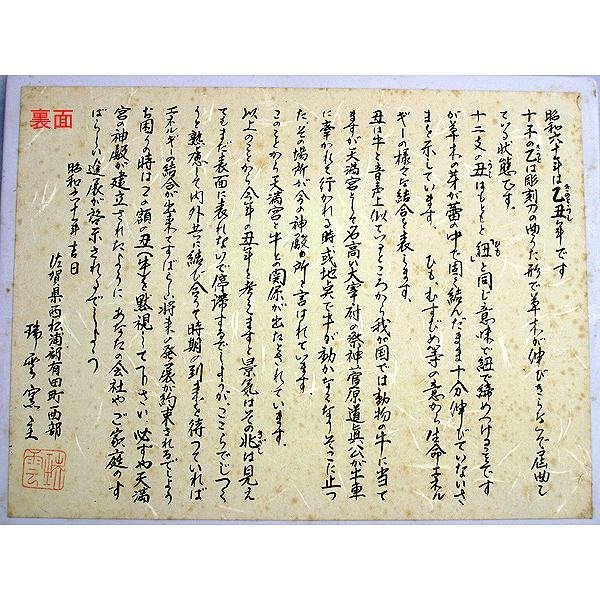 裏面
昭和六十年は乙丑年です
きのとうし
十干の乙は彫刻刀の曲った形で草木が伸びきらないで屈曲し
ている状態です。
十二支の丑はもともと「紐」と同じ意味で紐で締めつけることです
ひも
が草木の芽が蕾の中で固く結んだまま十分伸びていないさ
まを示しています。ひも、むすびめ等の意から生命エネル
ギーの様々な結合を表します。
丑は牛と音声上似ているところから我が国では動物の牛に当て
ますが天満宮として名高い太宰府の祭神菅原道眞公が牛車
に牽かれて行かれる時或地点で牛が動かなくなりそこに止っ
た、その場所が今の神殿の所と言はれています。
このことから天満宮と牛との関係が出たとされています。
以上のことから今年の丑年を考えますと景気はその兆は見え
きざし
てもまだ表面に表れないで停滞するでしょうが、ここらでじっく
りと熟慮して内外共に結び合って時期の到来を待っていれば
エネルギーの結合が出来てすばらしい将来の発展が約束されるでしょう
お困りの時はこの額の丑(牛)を黙視して下さい 必ずや天満
宮の神殿が建立されたように あなたの会社やご家庭のす
ばらしい進展が啓示されるでしょう
昭和六十年 吉日
佐賀県西松浦郡有田町西部
窯主